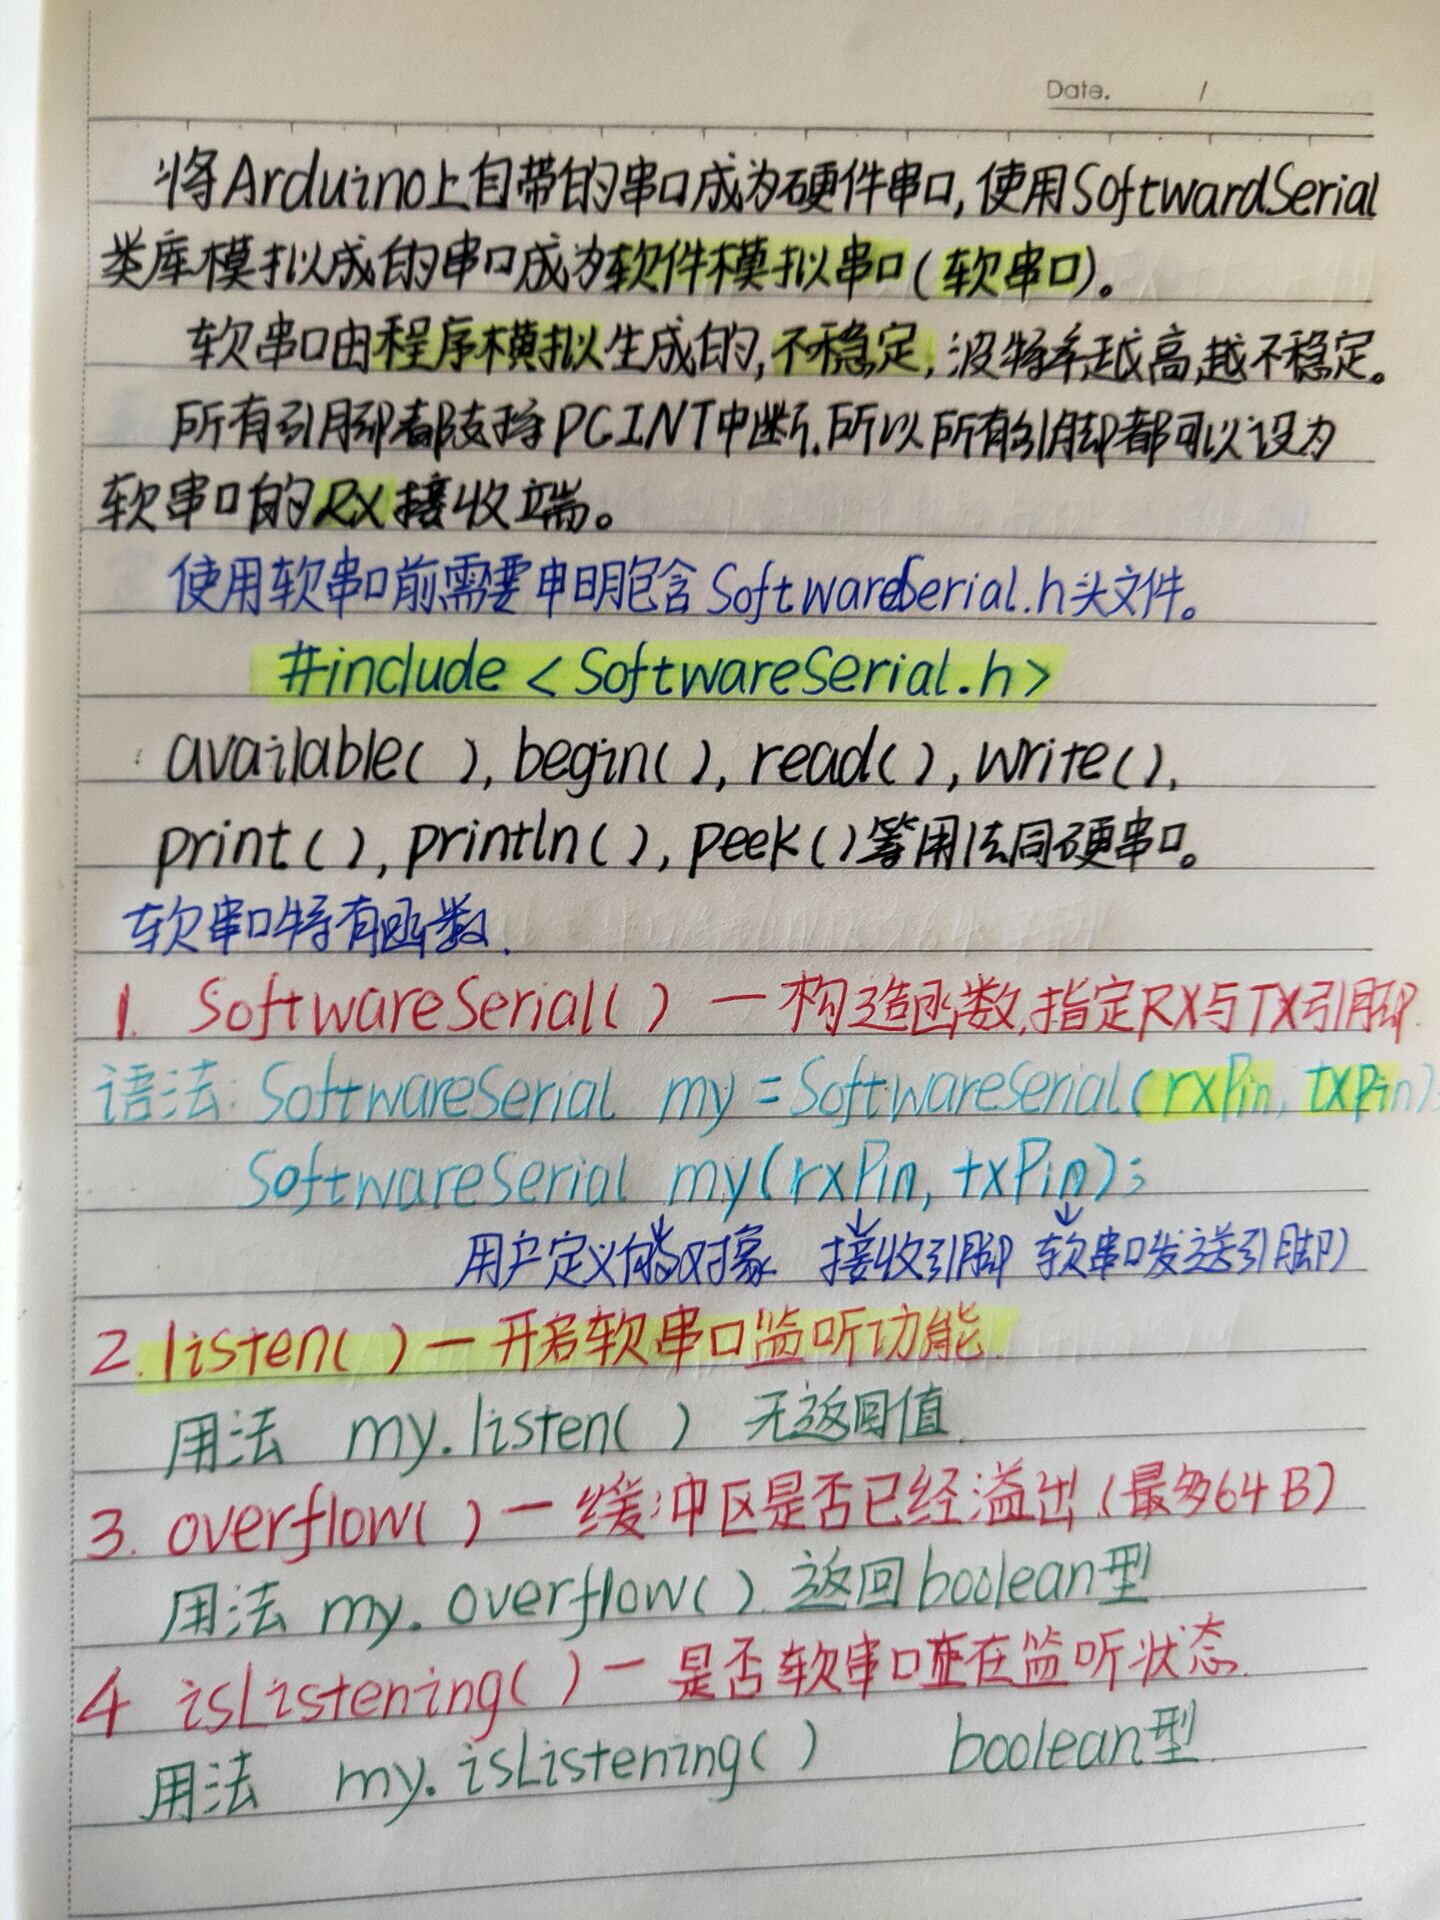 Date. /
将Arduino上自带的串口成为硬件串口,使用SoftwardSerial
类库模拟成的串口成为软件模拟串口(软串口)。
软串口由程序模拟生成的,不稳定,波特率越高,越不稳定。
所有引脚都支持PCINT中断.所以所有引脚都可以设为
软串口的RX接收端。
使用软串口前需要申明包含SoftwareSerial.h头文件。
#include <SoftwareSerial.h>
available( ), begin( ), read( ), write( ),
print( ), println( ), peek( )等用法同硬串口。
软串口特有函数.
1. SoftwareSerial( ) — 构造函数,指定RX与TX引脚.
语法: SoftwareSerial my = SoftwareSerial(rxPin, txPin);
SoftwareSerial my(rxPin, txPin);
用户定义的对象 接收引脚 软串口发送引脚)
2. listen( ) — 开启软串口监听功能.
用法 my.listen( ) 无返回值.
3. overflow( ) — 缓冲区是否已经溢出(最多64B)
用法 my.overflow( ). 返回boolean型
4 isListening( ) — 是否软串口正在监听状态.
用法 my.isListening( ) boolean型.